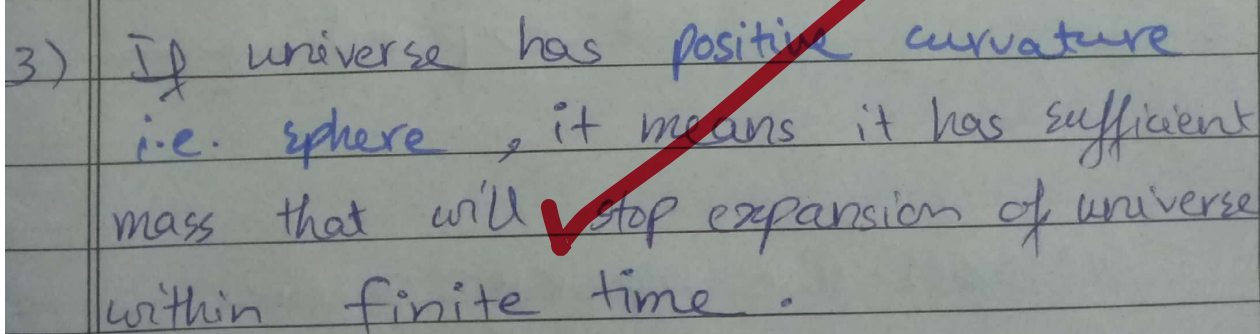 3) If universe has positive curvature
i.e. sphere, it means it has sufficient
mass that will stop expansion of universe
within finite time.